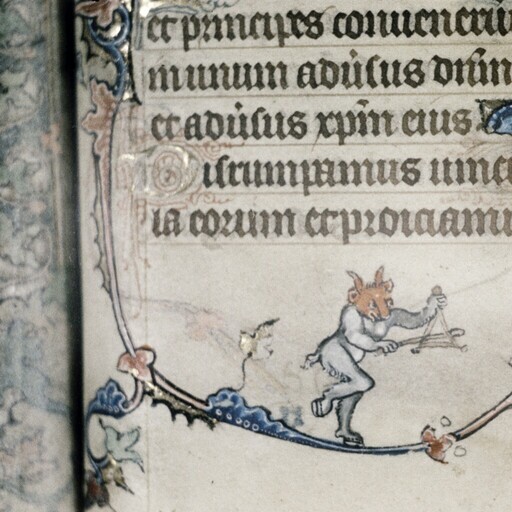 et principes conuenerun
munum adũsus dm̃
et adũsus xp̃m eius
Disrumpamus uinc
la eorum et proiciam